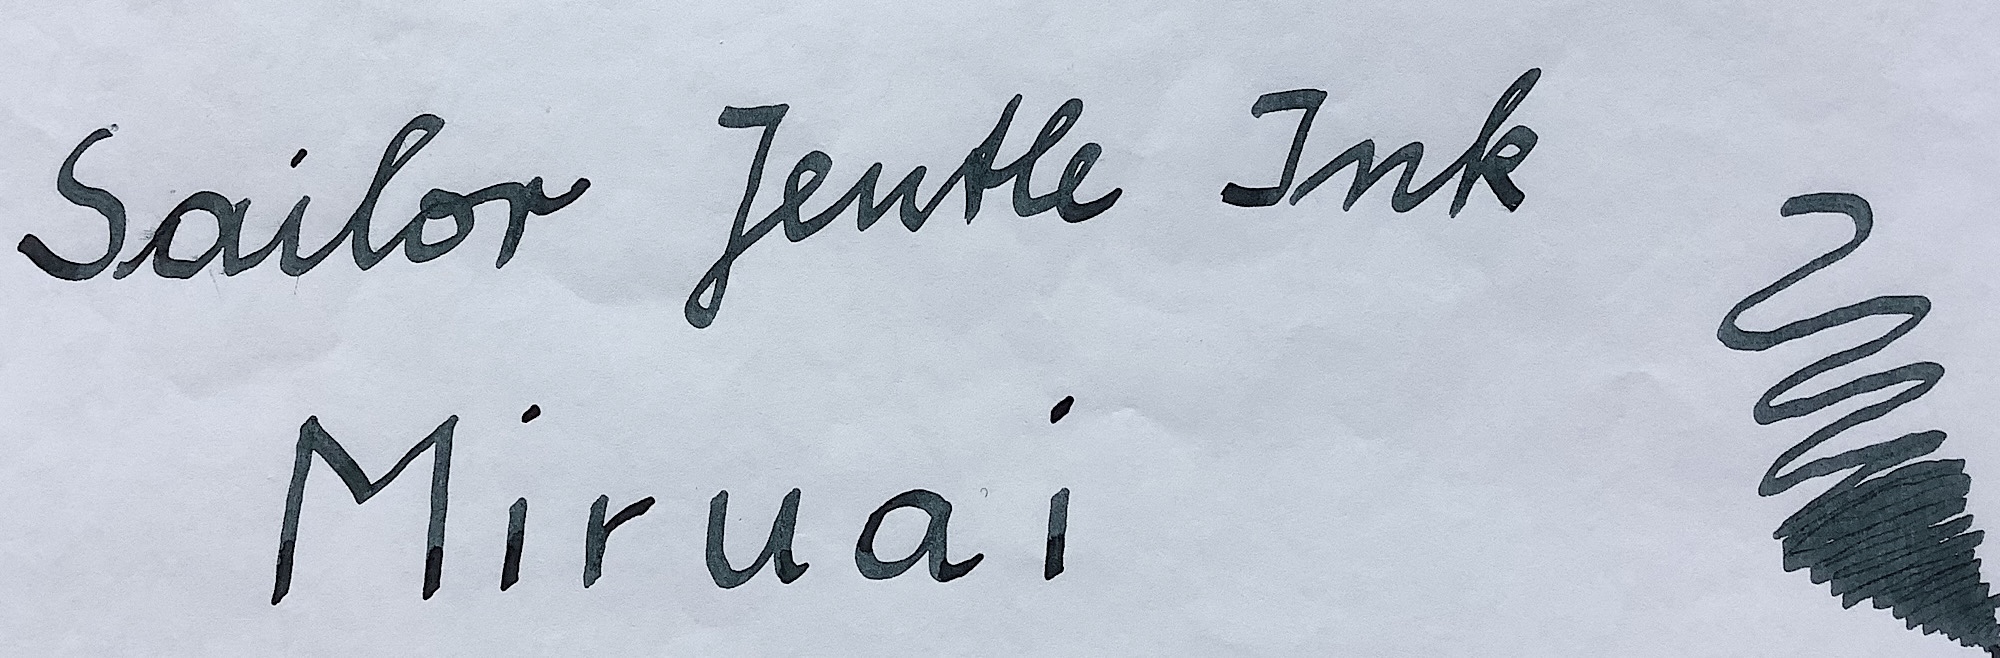 Sailor Jentle Ink
Miruai